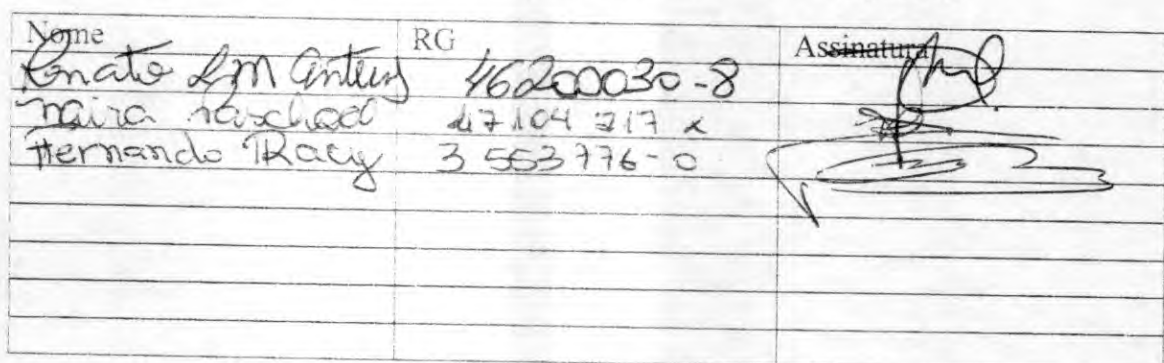 Nome RG Assinatura
Renato LM Antunes 46200030-8
Naira 47104717 x
Hernando 3 553776-0